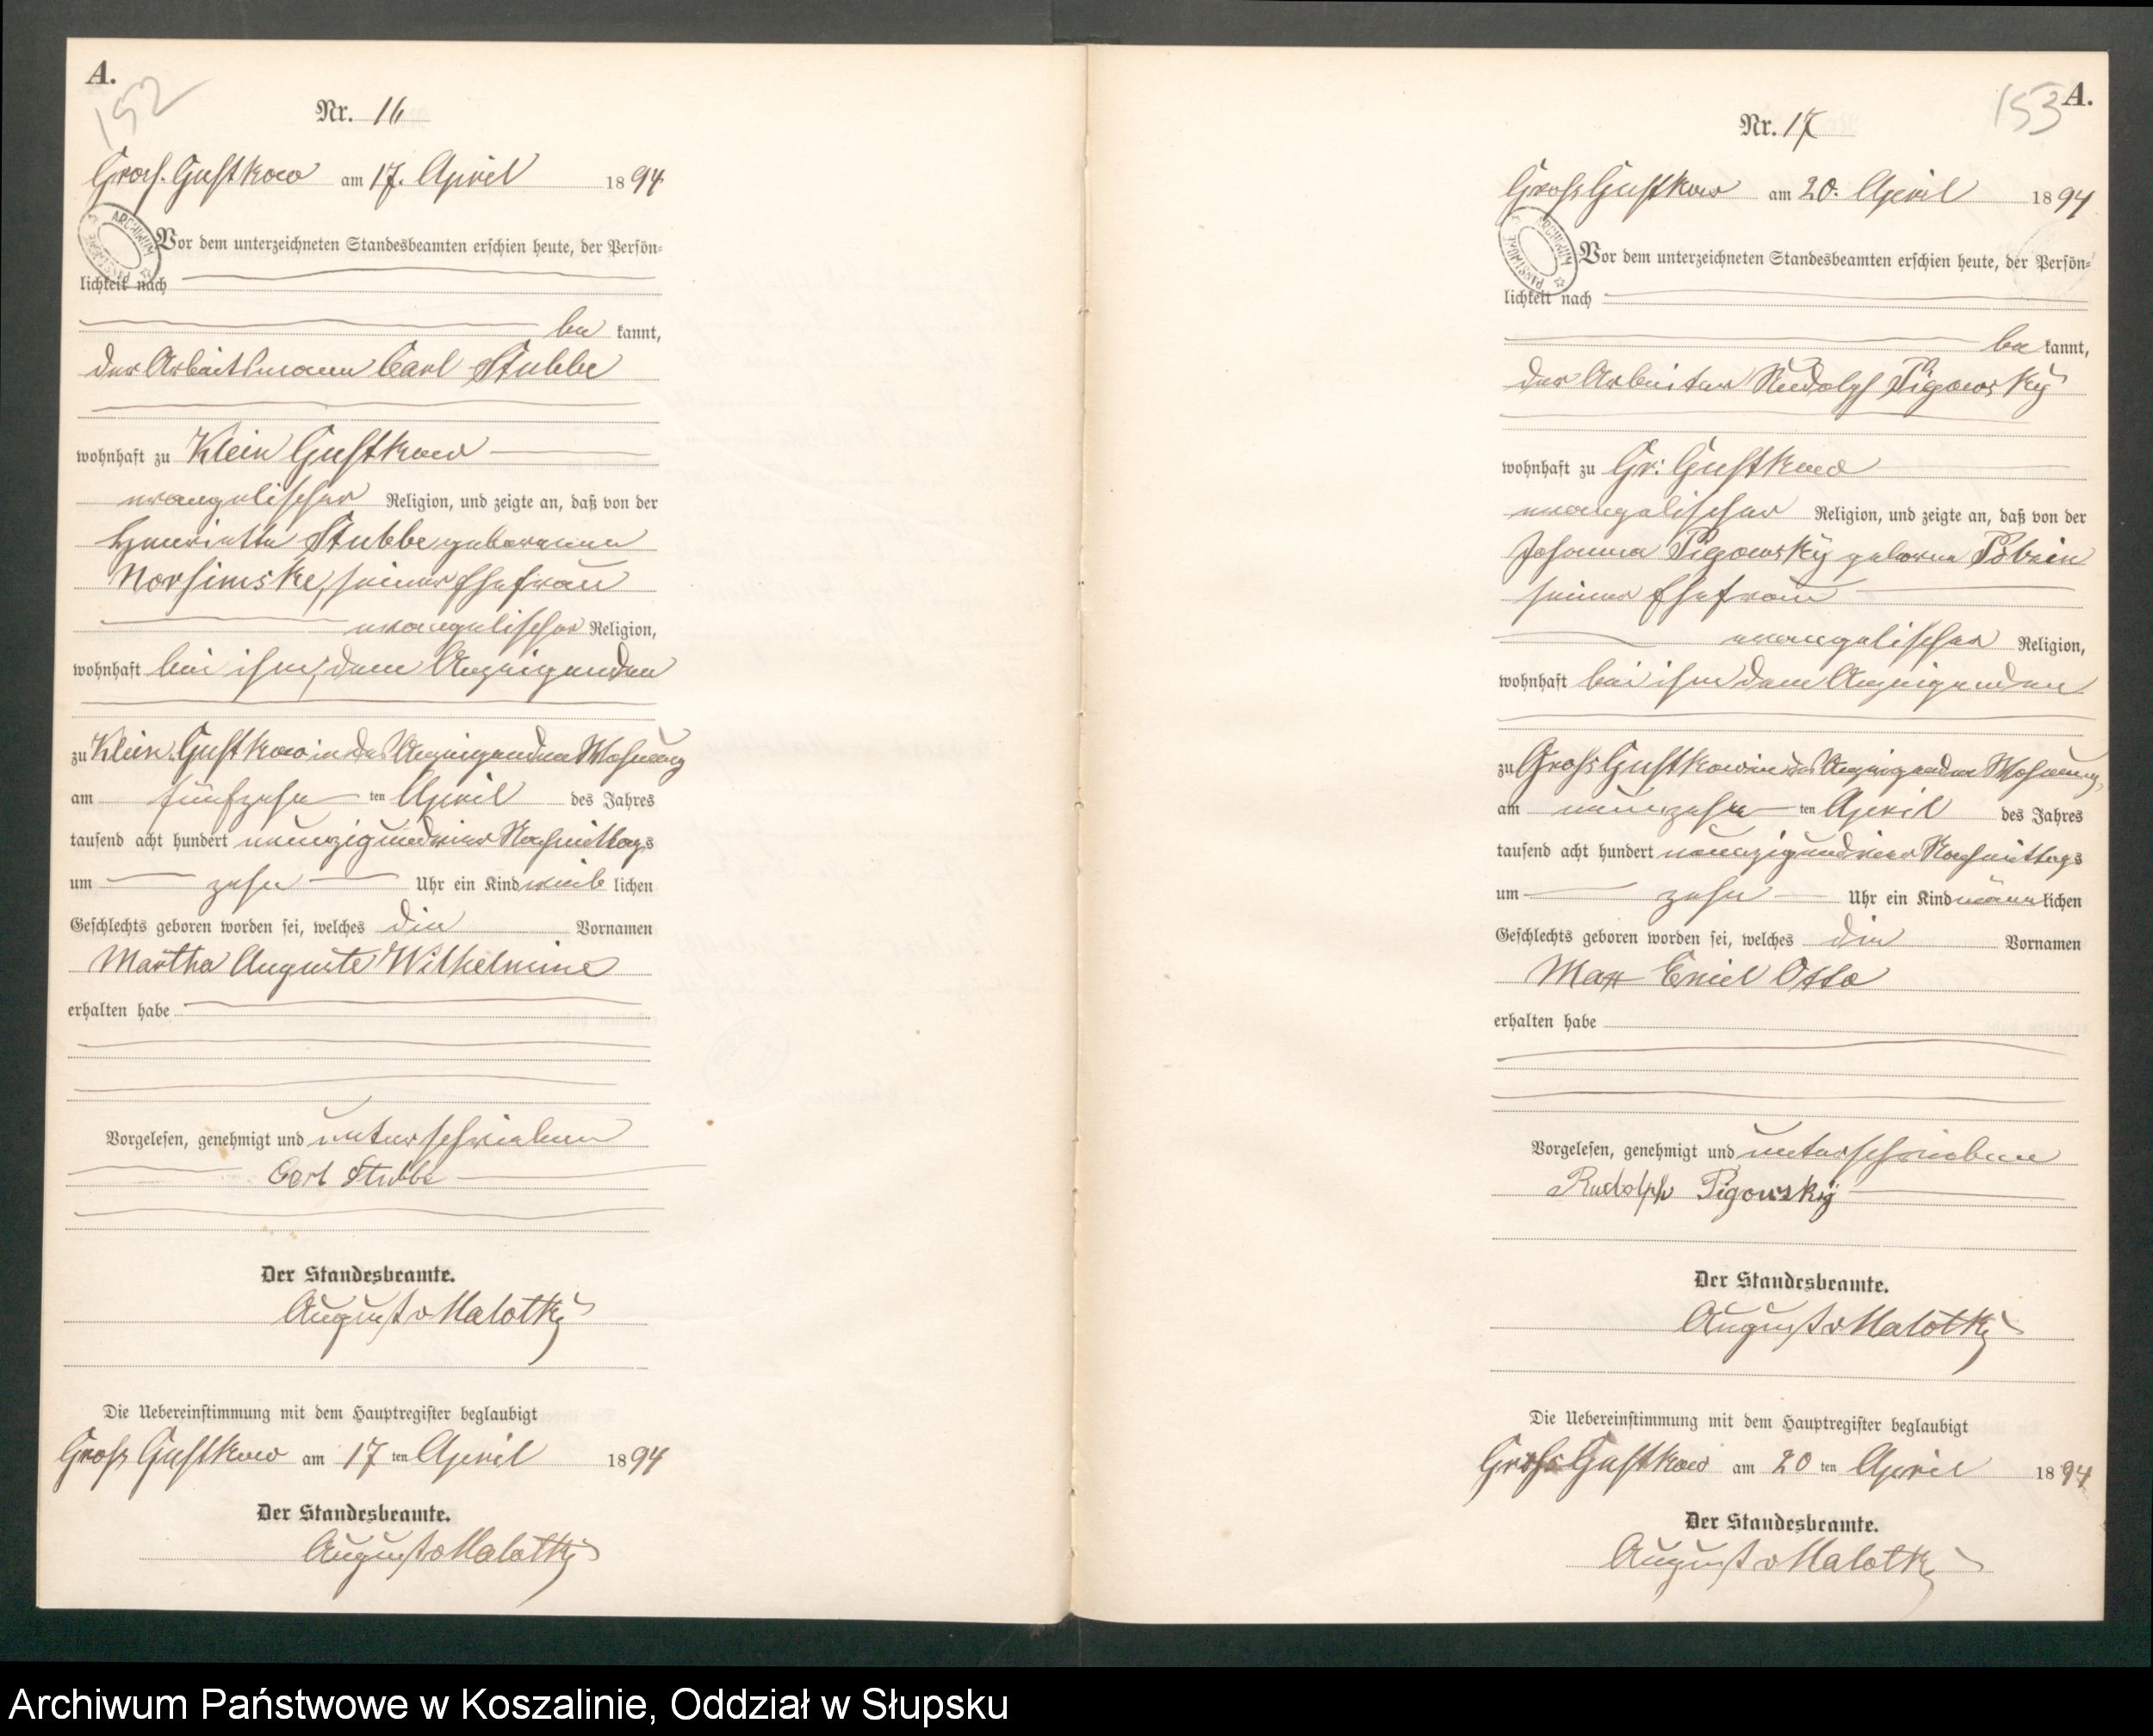 A.
152
Nr. 16
Gross Gustkow am 17. April 1894
ARCHIWUM PAŃSTWOWE
Vor dem unterzeichneten Standesbeamten erschien heute, der Persön-
lichkeit nach
be kannt,
der Arbeitsmann Carl Stubbe
wohnhaft zu Klein Gustkow
evangelischer Religion, und zeigte an, daß von der
Henriette Stubbe, geborenen
seiner Ehefrau
evangelischer Religion,
wohnhaft bei ihm, dem Anzeigenden
zu Klein Gustkow in des Anzeigenden Wohnung
am fünfzehn ten April des Jahres
tausend acht hundert neunzig und vier Nachmittags
um zehn Uhr ein Kind weib lichen
Geschlechts geboren worden sei, welches die Vornamen
Martha Auguste Wilhelmine
erhalten habe
Vorgelesen, genehmigt und unterschrieben
Carl Stubbe
Der Standesbeamte.
August v Malottky
Die Uebereinstimmung mit dem Hauptregister beglaubigt
Gross Gustkow am 17 ten April 1894
Der Standesbeamte.
August v Malottky
A.
153
Nr. 17
Gross Gustkow am 20. April 1894
ARCHIWUM PAŃSTWOWE
Vor dem unterzeichneten Standesbeamten erschien heute, der Persön-
lichkeit nach
be kannt,
der Arbeiter Rudolph Pigowsky
wohnhaft zu Gr. Gustkow
evangelischer Religion, und zeigte an, daß von der
Johanna Pigowsky geborne
seiner Ehefrau
evangelischer Religion,
wohnhaft bei ihm dem Anzeigenden
zu Gross Gustkow in des Anzeigenden Wohnung,
am neunzehn ten April des Jahres
tausend acht hundert neunzig und vier Nachmittags
um zehn Uhr ein Kind männ lichen
Geschlechts geboren worden sei, welches die Vornamen
Max Emil Otto
erhalten habe
Vorgelesen, genehmigt und unterschrieben
Rudolph Pigowsky
Der Standesbeamte.
August v Malottky
Die Uebereinstimmung mit dem Hauptregister beglaubigt
Gross Gustkow am 20 ten April 1894
Der Standesbeamte.
August v Malottky
Archiwum Państwowe w Koszalinie, Oddział w Słupsku